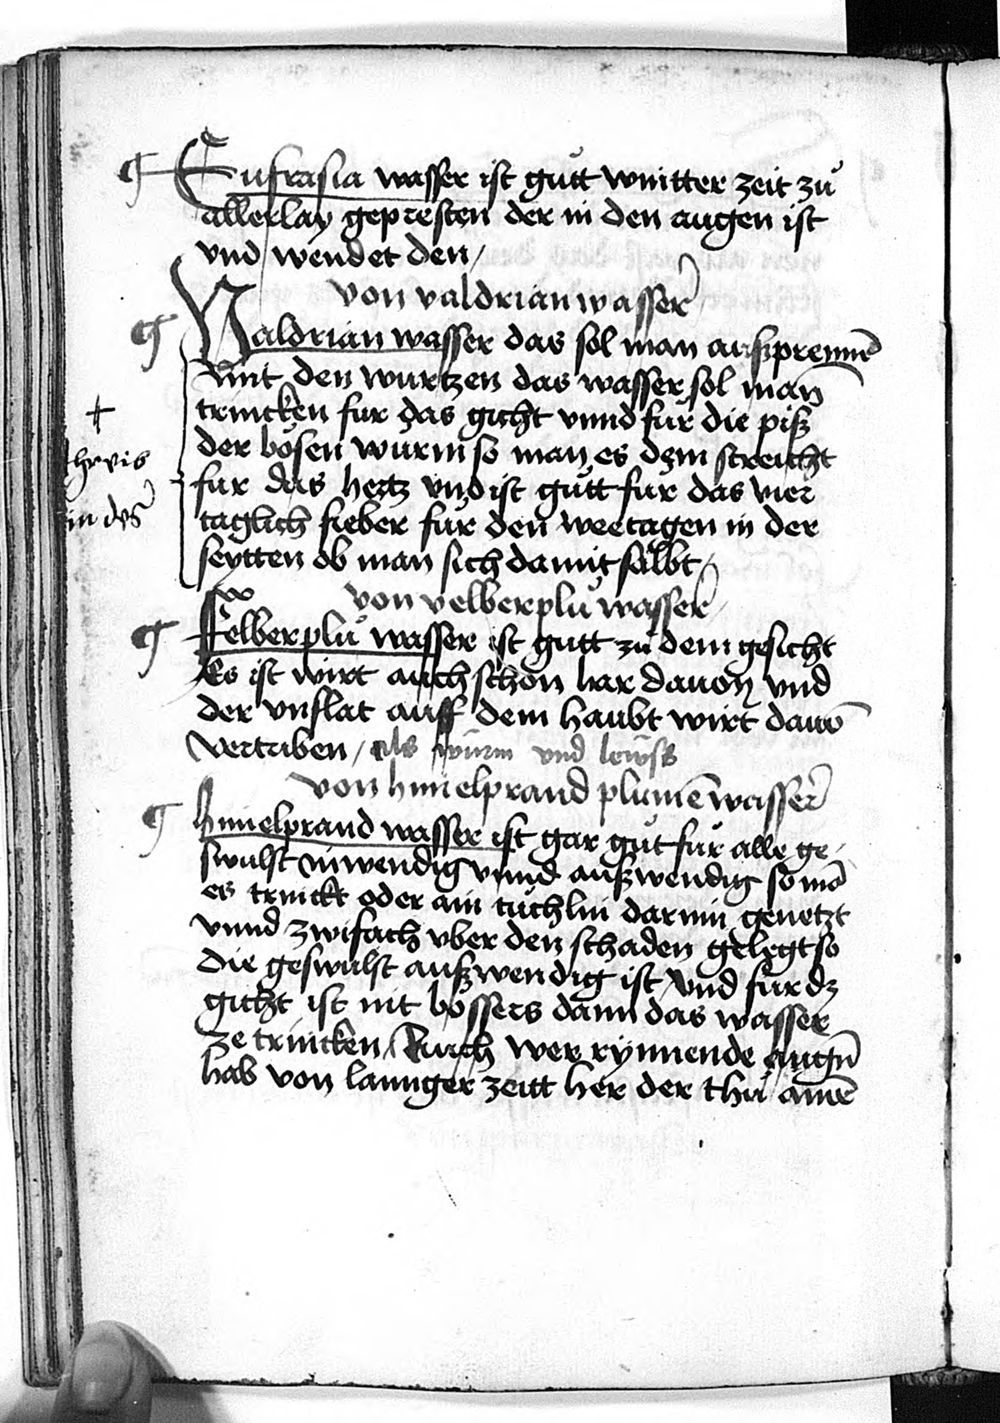 ¶ Eufrasia wasser ist gůtt wintter zeit zů
allerlay gepresten der in den augen ist
vnd wendet den /
von valdrian wasser
¶ Valdrian wasser das sol man außprennē
mit den wurtzen das wasser sol man
trincken fur das gicht vnnd für die piß
der bösen würm so man es dem streicht
für das hertz vnd ist gůtt für das vier
taglich fieber für den weetagen in der
seytten ob man sich damit salbt /
von velberplů wasser /
¶ Felberplů wasser ist gutt zů dem gesicht
Es ist wirt auch schon har dauon vnd
der vnflat auff dem haubt wirt dauō
vertriben / als würm vnd lewss
von himelprand plumē wasser
¶ himelprand wasser ist gar gůt für alle ge /
swulst inwendig vnnd außwendig so mā
es trinckt oder ain tüchlin darinn genetzt
vnnd zwifach vber den schaden gelegt so
die geswulst außwendig ist / vnd für dz
gicht ist nit bössers dann das wasser
ze trincken / Auch wer rynnende augn̄
hab von lannger zeitt her der thů ainē